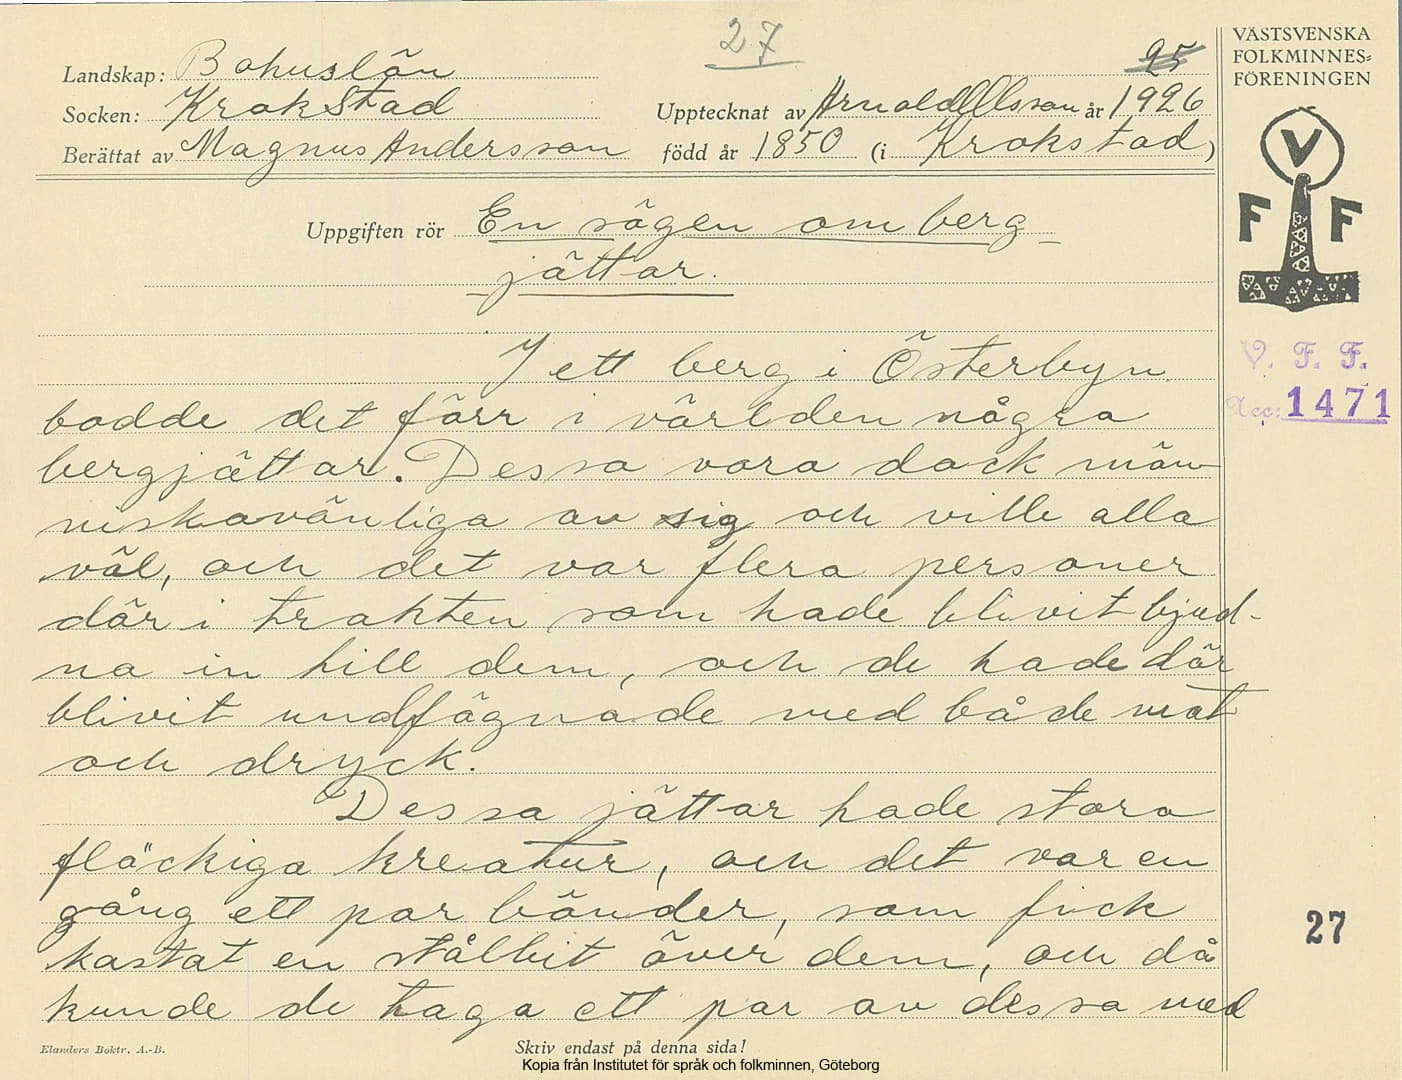 27
25
VÄSTSVENSKA
FOLKMINNES=
FÖRENINGEN
V
F F
Landskap: Bohuslän
Socken: Krokstad
Upptecknat av Arnold Olsson år 1926
Berättat av Magnus Andersson född år 1850 (i Krokstad)
Uppgiften rör En sägen om berg
jättar.
V. F. F.
Acc: 1471
I ett berg i Österbyn
bodde det förr i världen några
bergjättar. Dessa voro dock män
niskovänliga av sig och ville alla
väl, och det var flera personer
där i trakten som hade blivit bjud-
na in till dem, och de hade där
blivit undfägnade med både mat
och dryck.
Dessa jättar hade stora
fläckiga kreatur, och det var en
gång ett par bönder, som fick
kastat en stålbit över dem, och då
kunde de taga ett par av dessa med
27
Elanders Boktr. A.-B.
Skriv endast på denna sida!
Kopia från Institutet för språk och folkminnen, Göteborg